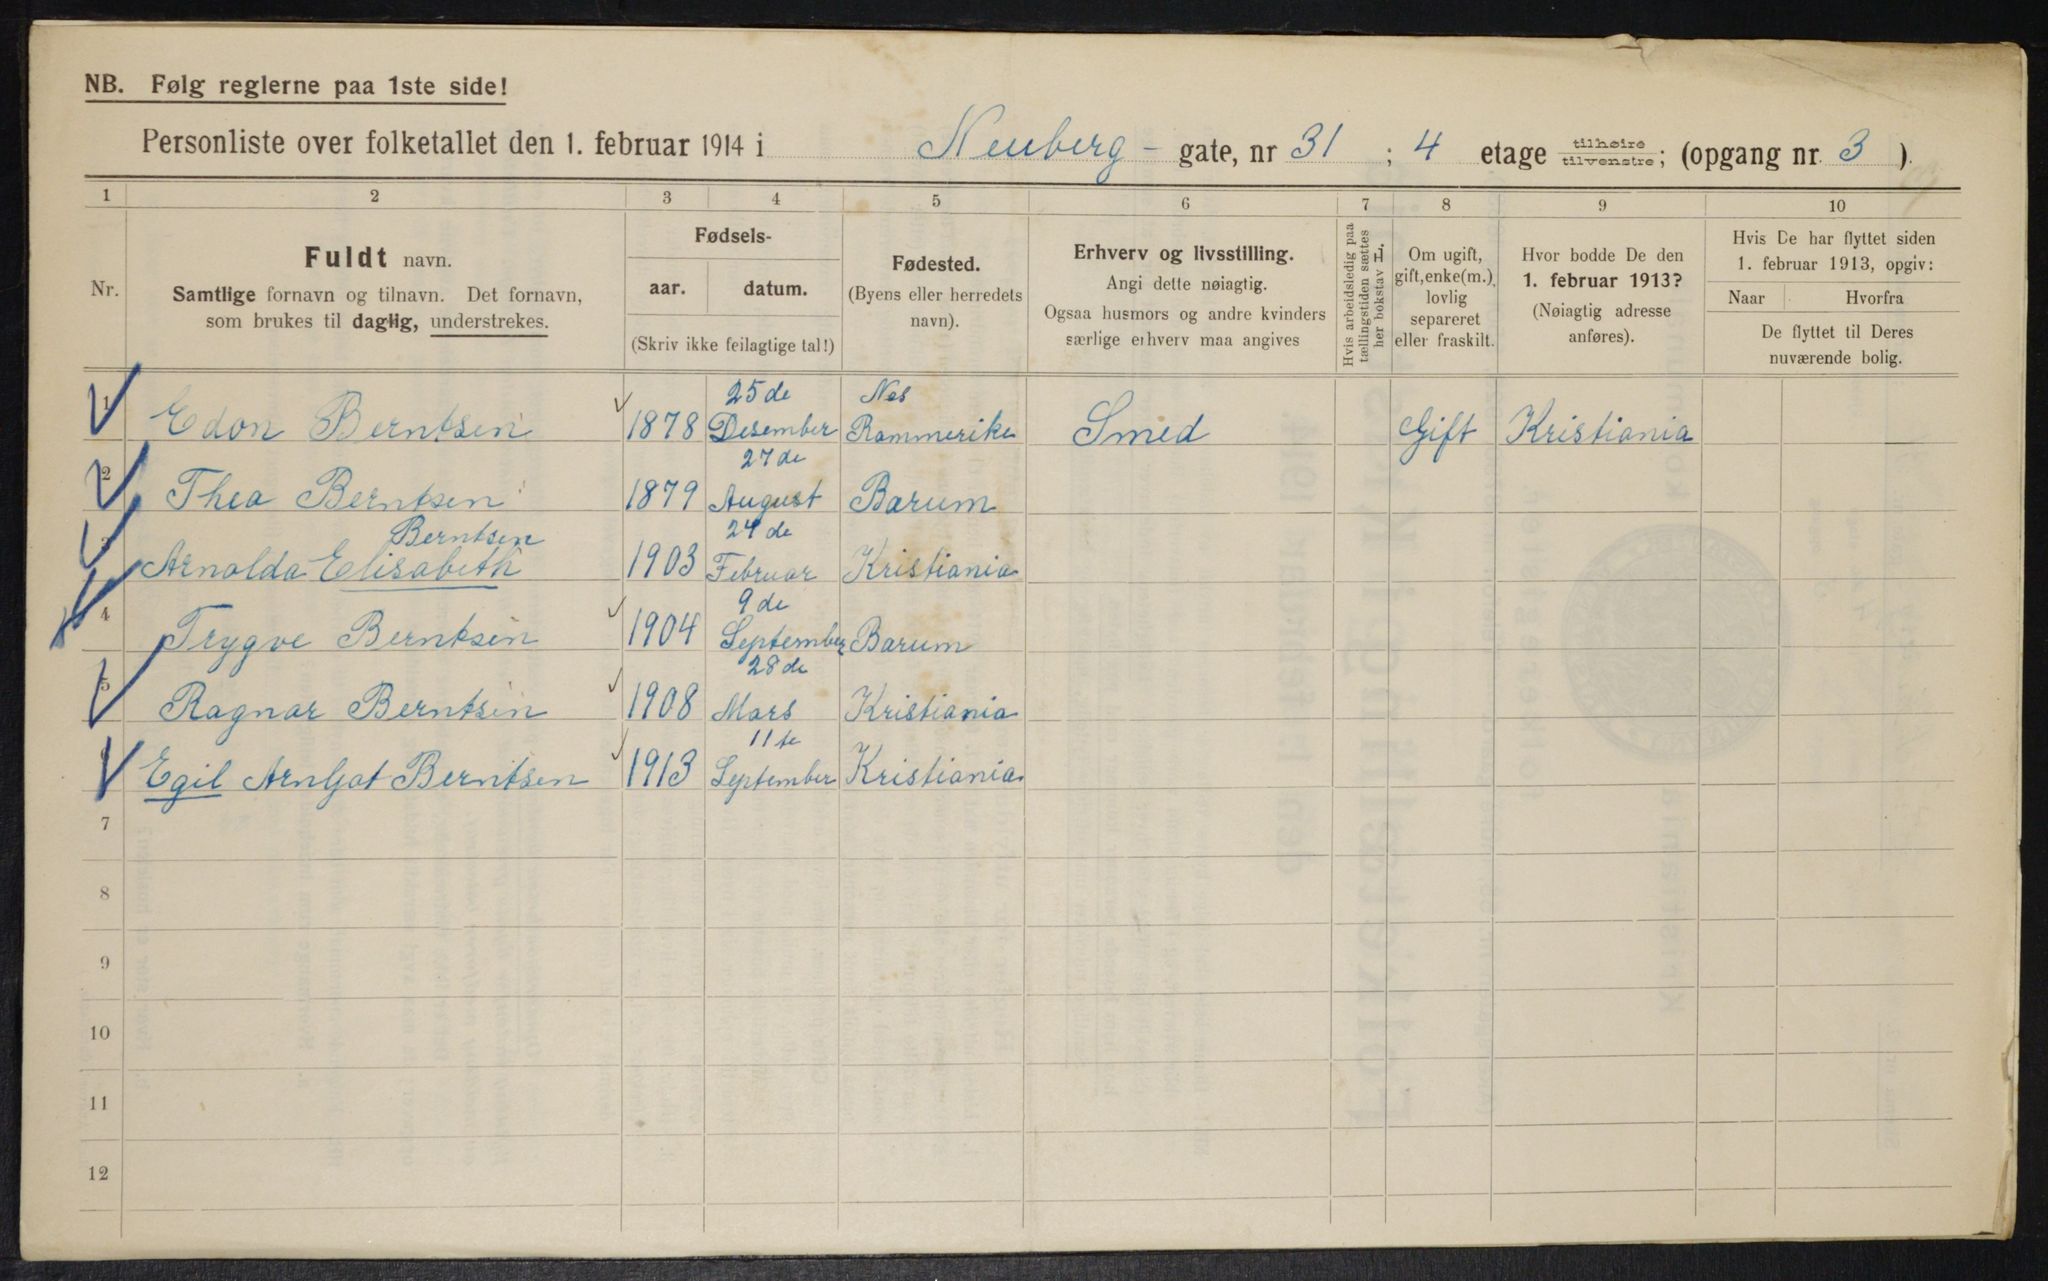 NB. Følg reglerne paa 1ste side!
Personliste over folketallet den 1. februar 1914 i Neuberg - gate, nr 31 ; 4 etage tilhøire tilvenstre; (opgang nr. 3 ).
1 2 3 4 5 6 7 8 9 10
Nr.
Fuldt navn.
Samtlige fornavn og tilnavn. Det fornavn,
som brukes til daglig, understrekes.
Fødsels-
aar. datum.
(Skriv ikke feilagtige tal!)
Fødested.
(Byens eller herredets
navn).
Erhverv og livsstilling.
Angi dette nøiagtig.
Ogsaa husmors og andre kvinders
særlige erhverv maa angives
Hvis arbeidsledig paa
tællingstiden sættes
her bokstav L.
Om ugift,
gift, enke(m.),
lovlig
separeret
eller fraskilt.
Hvor bodde De den
1. februar 1913?
(Nøiagtig adresse
anføres).
Hvis De har flyttet siden
1. februar 1913, opgiv:
Naar Hvorfra
De flyttet til Deres
nuværende bolig.
25de Nes
1 Edon Berntsen 1878 Desember Rammerike Smed Gift Kristiania
27 de
2 Thea Berntsen 1879 August Barum
Berntsen 24 de
3 Arnolda Elisabeth 1903 Februar Kristiania
9 de
4 Trygve Berntsen 1904 September Barum
28 de
5 Ragnar Berntsen 1908 Mars Kristiania
11 te
Egil Arnljot Berntsen 1913 September Kristiania
7
8
9
10
11
12